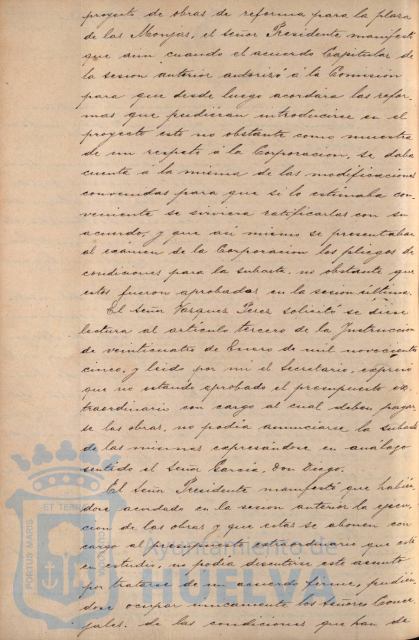 proyecto de obras de reforma para la plaza
de las Monjas, el señor Presidente manifestó
que aun cuando el acuerdo Capitular de
la sesion anterior autorizó á la Comision
para que desde luego acordara las refor-
mas que pudieran introducirse en el
proyecto esto no obstante como muestra
de un respeto á la Corporacion, se daba
cuenta á la misma de las modificaciones
convenidas para que si lo estimaba con-
veniente se sirviera ratificarlas con su
acuerdo, y que asi mismo se presentaban
al exámen de la Corporacion los pliegos de
condiciones para la subasta, no obstante que
estos fueron aprobados en la sesion última.
El Señor Vazquez Perez solicitó se diese
lectura al articulo tercero de la Instruccion
de veinticuatro de Enero de mil novecientos
cinco, y leido por mi el Secretario, expresó
que no estando aprobado el presupuesto ex-
traordinario con cargo al cual deben pagar-
se las obras, no podia anunciarse la subasta
de las mismas expresándose en análogo
sentido el Señor Garcia, Don Diego.
El Señor Presidente manifestó que habien-
dose acordado en la sesion anterior la ejecu-
cion de las obras y que estas se abonen con
cargo al presupuesto extraordinario que está
en estudio, no podia discutirse este asunto
por tratarse de un acuerdo firme, pudien-
dose ocupar unicamente los Señores Conce-
jales de las condiciones que han de
PORTUS MARIS
ET TERRAE
CUSTODIA
Ayuntamiento de
HUELVA